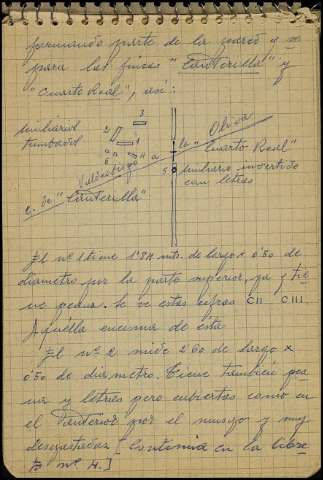 formando parte de la pared q.
para las fincas "Cantorilla" y
"Cuarto Real", así:
3
Miliarios
tumbados
2
1
4
a la Oliva
"Cuarto Real"
5
miliario invertido
con letras
Valdeobispo
c. de "Cantorilla"
El nº 1 tiene 1'84 mts. de largo x 0'50 de
diámetro por la parte superior, pa y tie-
ne peana. Se ve estas cifras CII CIII.
Aquélla encima de ésta.
El nº 2 mide 2'60 de largo x
0'50 de diámetro. Tiene también pea-
na y letras pero cubiertas como en
el anterior por el musgo y muy
desgastadas [Continúa en la libre-
ta nº 4.]